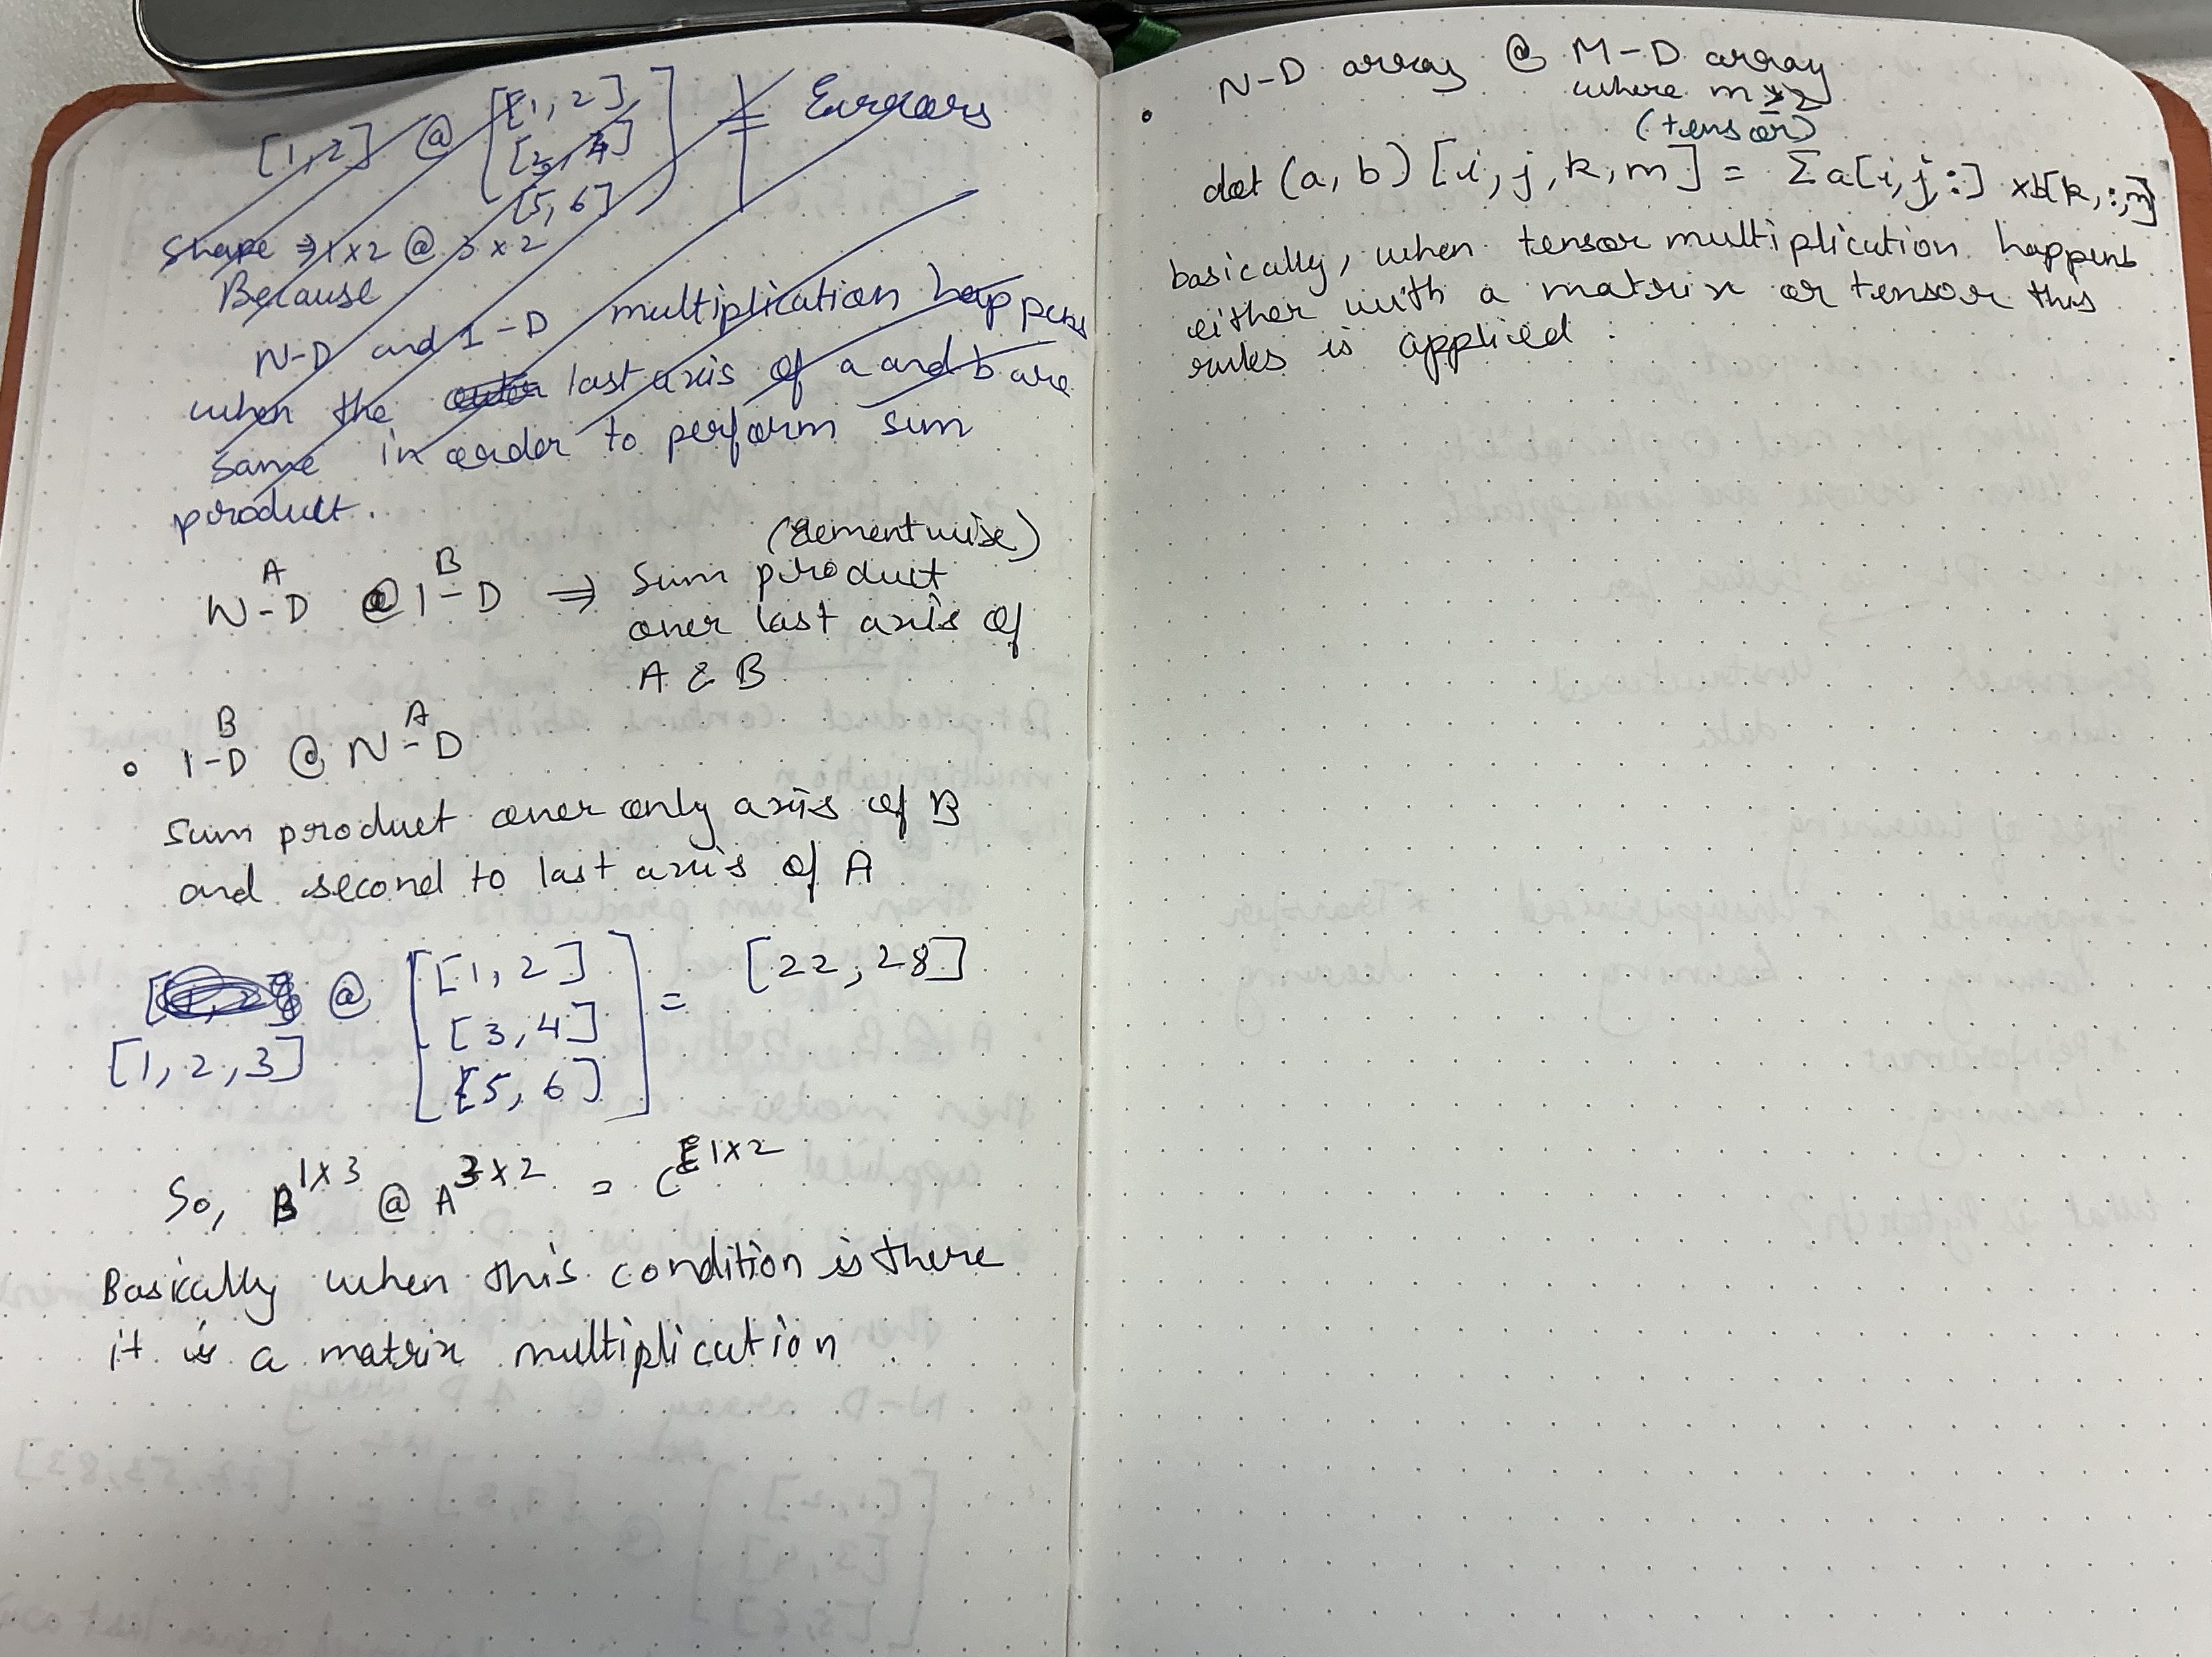 [1,2] @ [[1,2] = Errors
[3,4]
[5,6]]
Shape ⇒ 1x2 @ 3x2
Because
N-D and 1-D multiplication happens
when the last axis of a and b are
same in order to perform sum
product.
(elementwise)
A B
N-D @ 1-D ⇒ Sum product
over last axis of
A & B
B A
∘ 1-D @ N-D
Sum product over only axis of B
and second to last axis of A
@ [[1,2] = [22,28]
[1,2,3] [3,4]
[5,6]]
So, B^1x3 @ A^3x2 = C^1x2
Basically when this condition is there
it is a matrix multiplication.
∘ N-D array @ M-D array
where m≥2
(tensor)
dot (a,b) [i,j,k,m] = Σa[i,j,:] xb[k,:,m]
basically, when tensor multiplication happens
either with a matrix or tensor this
rules is applied.